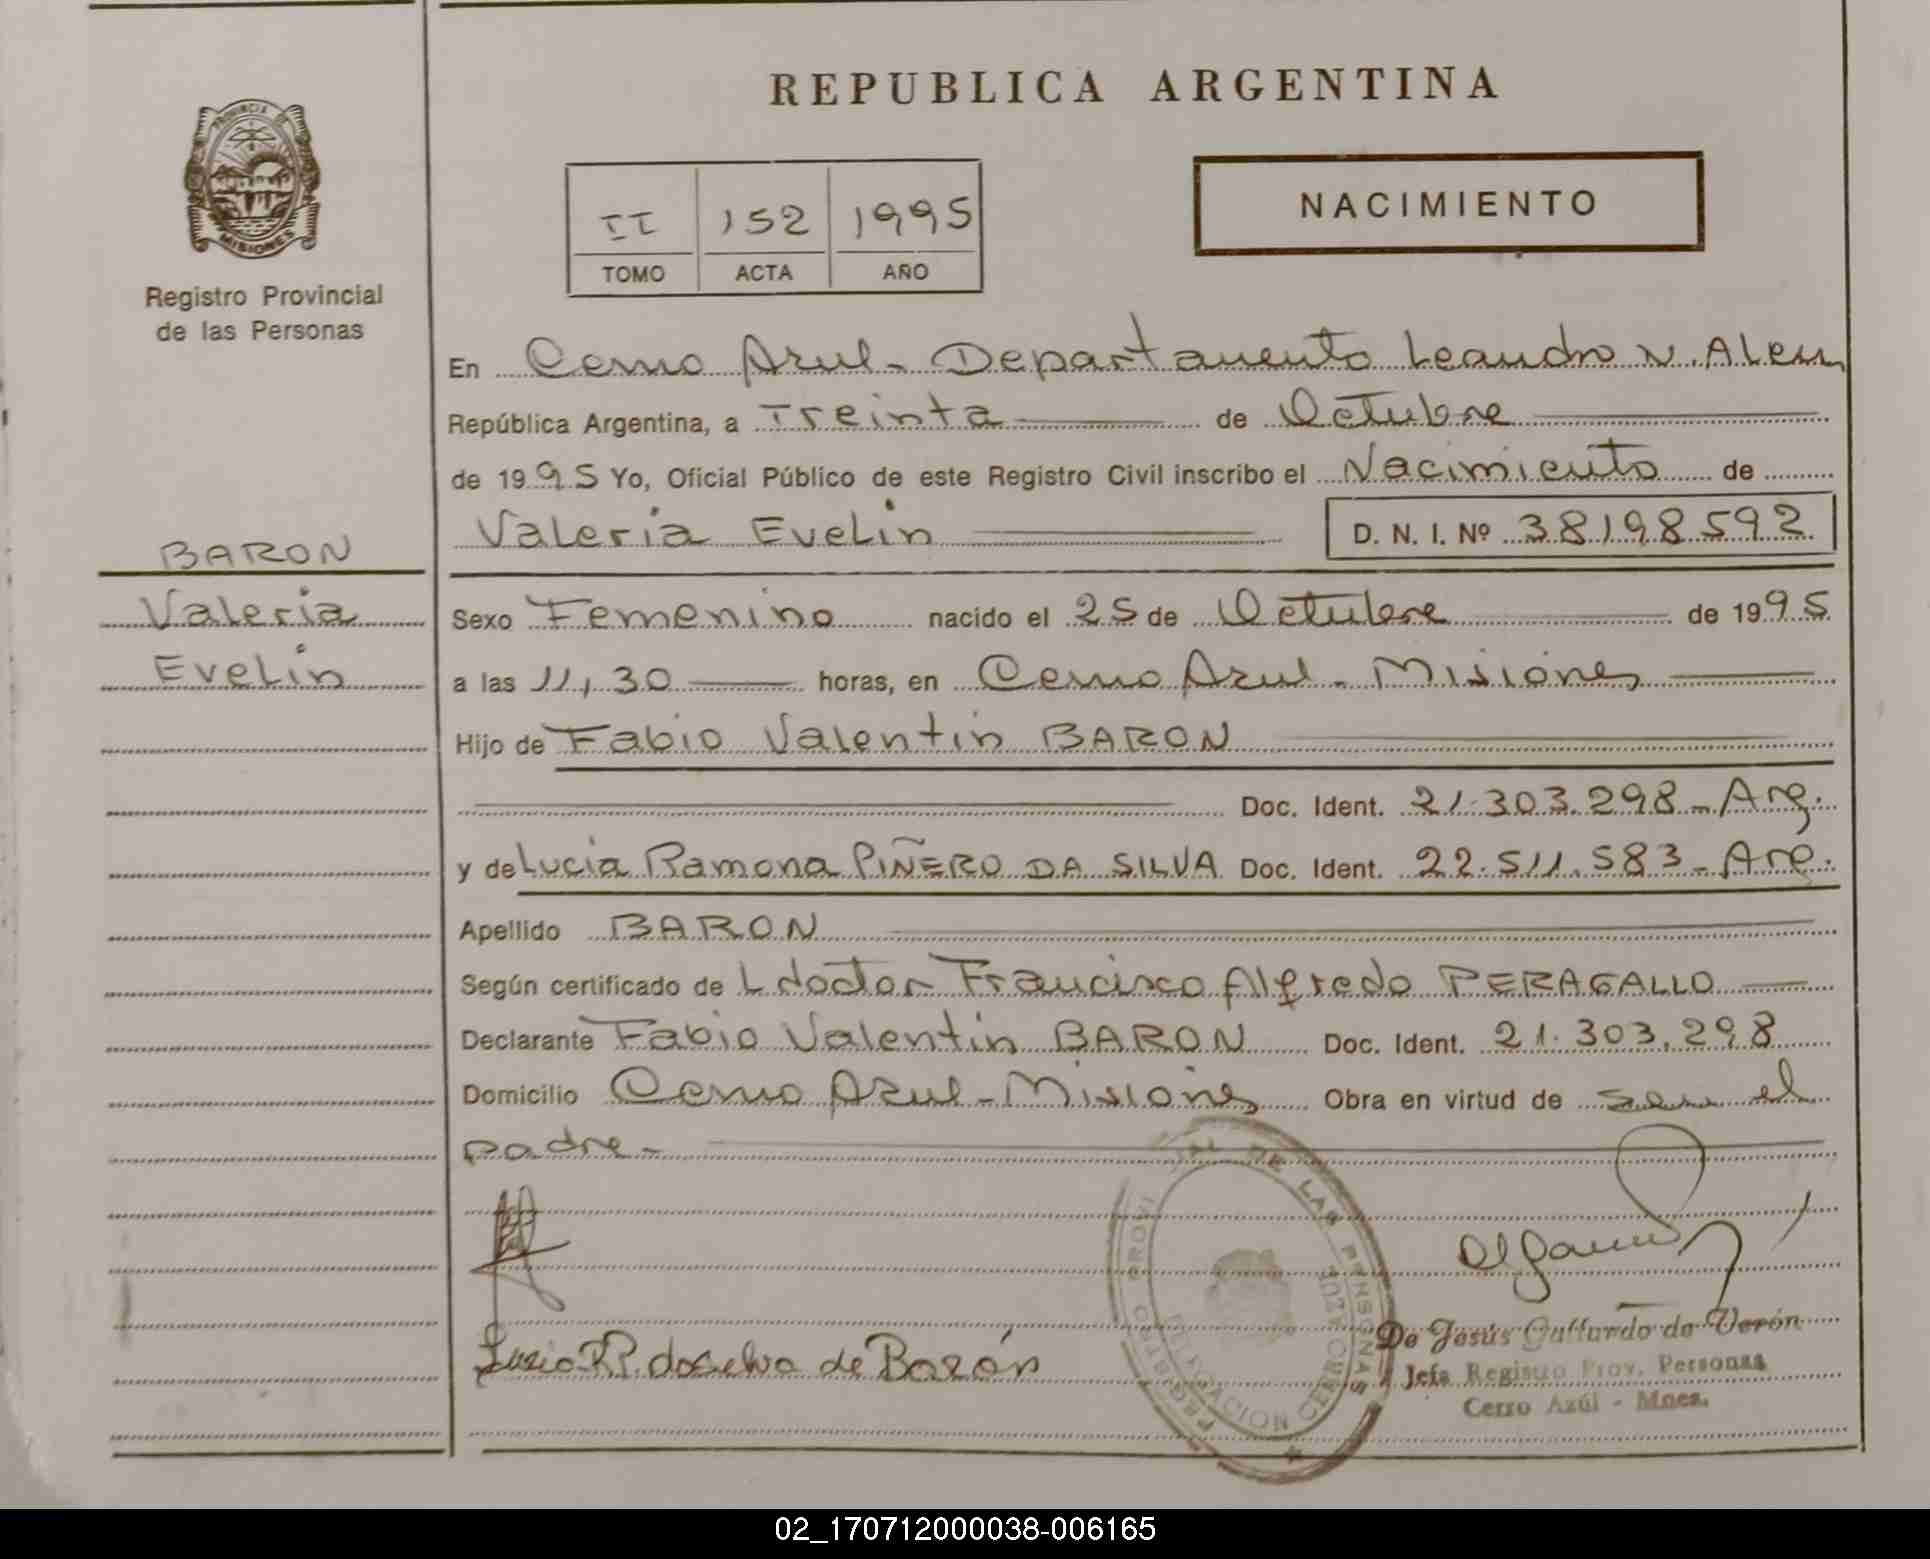 REPUBLICA ARGENTINA
PROVINCIA DE
MISIONES
Registro Provincial
de las Personas
NACIMIENTO
II 152 1995
TOMO ACTA AÑO
En Cerro Azul - Departamento Leandro N. Alem
República Argentina, a Treinta de Octubre
de 1995 Yo, Oficial Público de este Registro Civil inscribo el Nacimiento de
Valeria Evelin D. N. I. Nº 38198592
BARON
Valeria
Evelin
Sexo Femenino nacido el 25 de Octubre de 1995
a las 11,30 horas, en Cerro Azul - Misiones
Hijo de Fabio Valentin BARON
Doc. Ident. 21.303.298 - Arg.
y de Lucia Ramona PIÑERO DA SILVA Doc. Ident. 22.511.583 - Arg.
Apellido BARON
Según certificado de L doctor Francisco Alfredo PERAGALLO
Declarante Fabio Valentin BARON Doc. Ident. 21.303.298
Domicilio Cerro Azul - Misiones Obra en virtud de ser el
padre -
DE LAS PERSONAS
CERRO AZUL
de Barón
De Jesús Gallardo de Verón
Jefa Registro Prov. Personas
Cerro Azúl - Mnes.
02_170712000038-006165